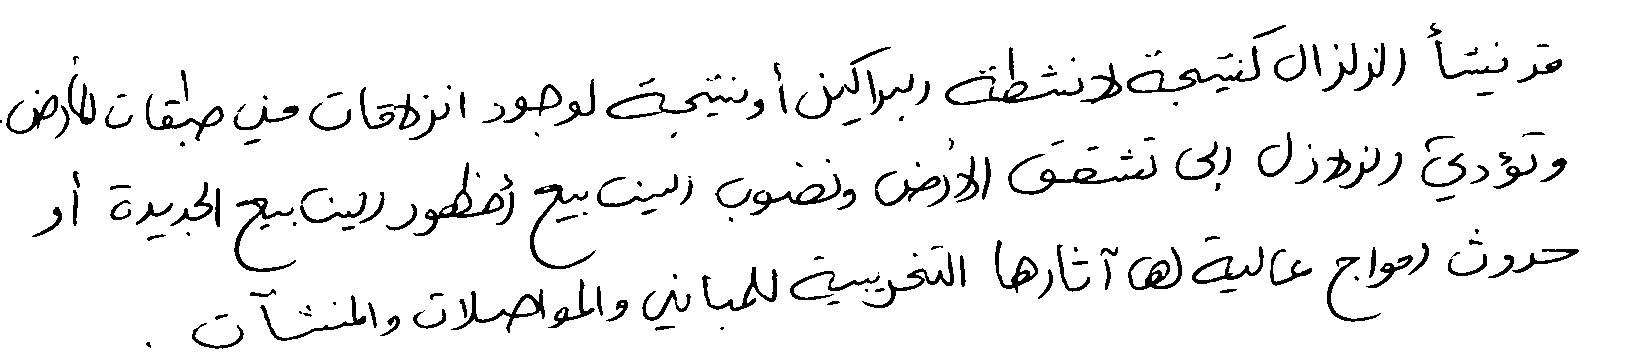 قد ينشأ الزلزال كنتيجة لانشطة البراكين أو نتيجة لوجود انزلاقات في طبقات الأرض.
وتؤدي الزلازل الى تشقق الأرض ونضوب الينابيع أو ظهور الينابيع الجديدة أو
حدوث امواج عالية لها آثارها التخريبية للمباني والمواصلات والمنشآت .